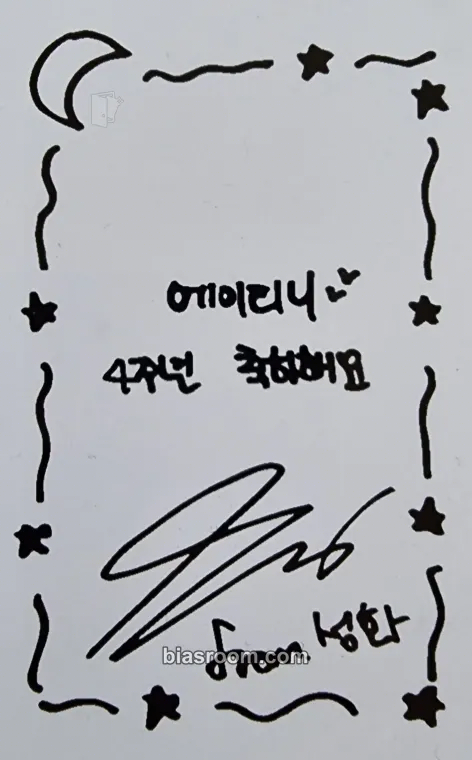 에이티니
4주년 축하해요
from 성화
biasroom.com